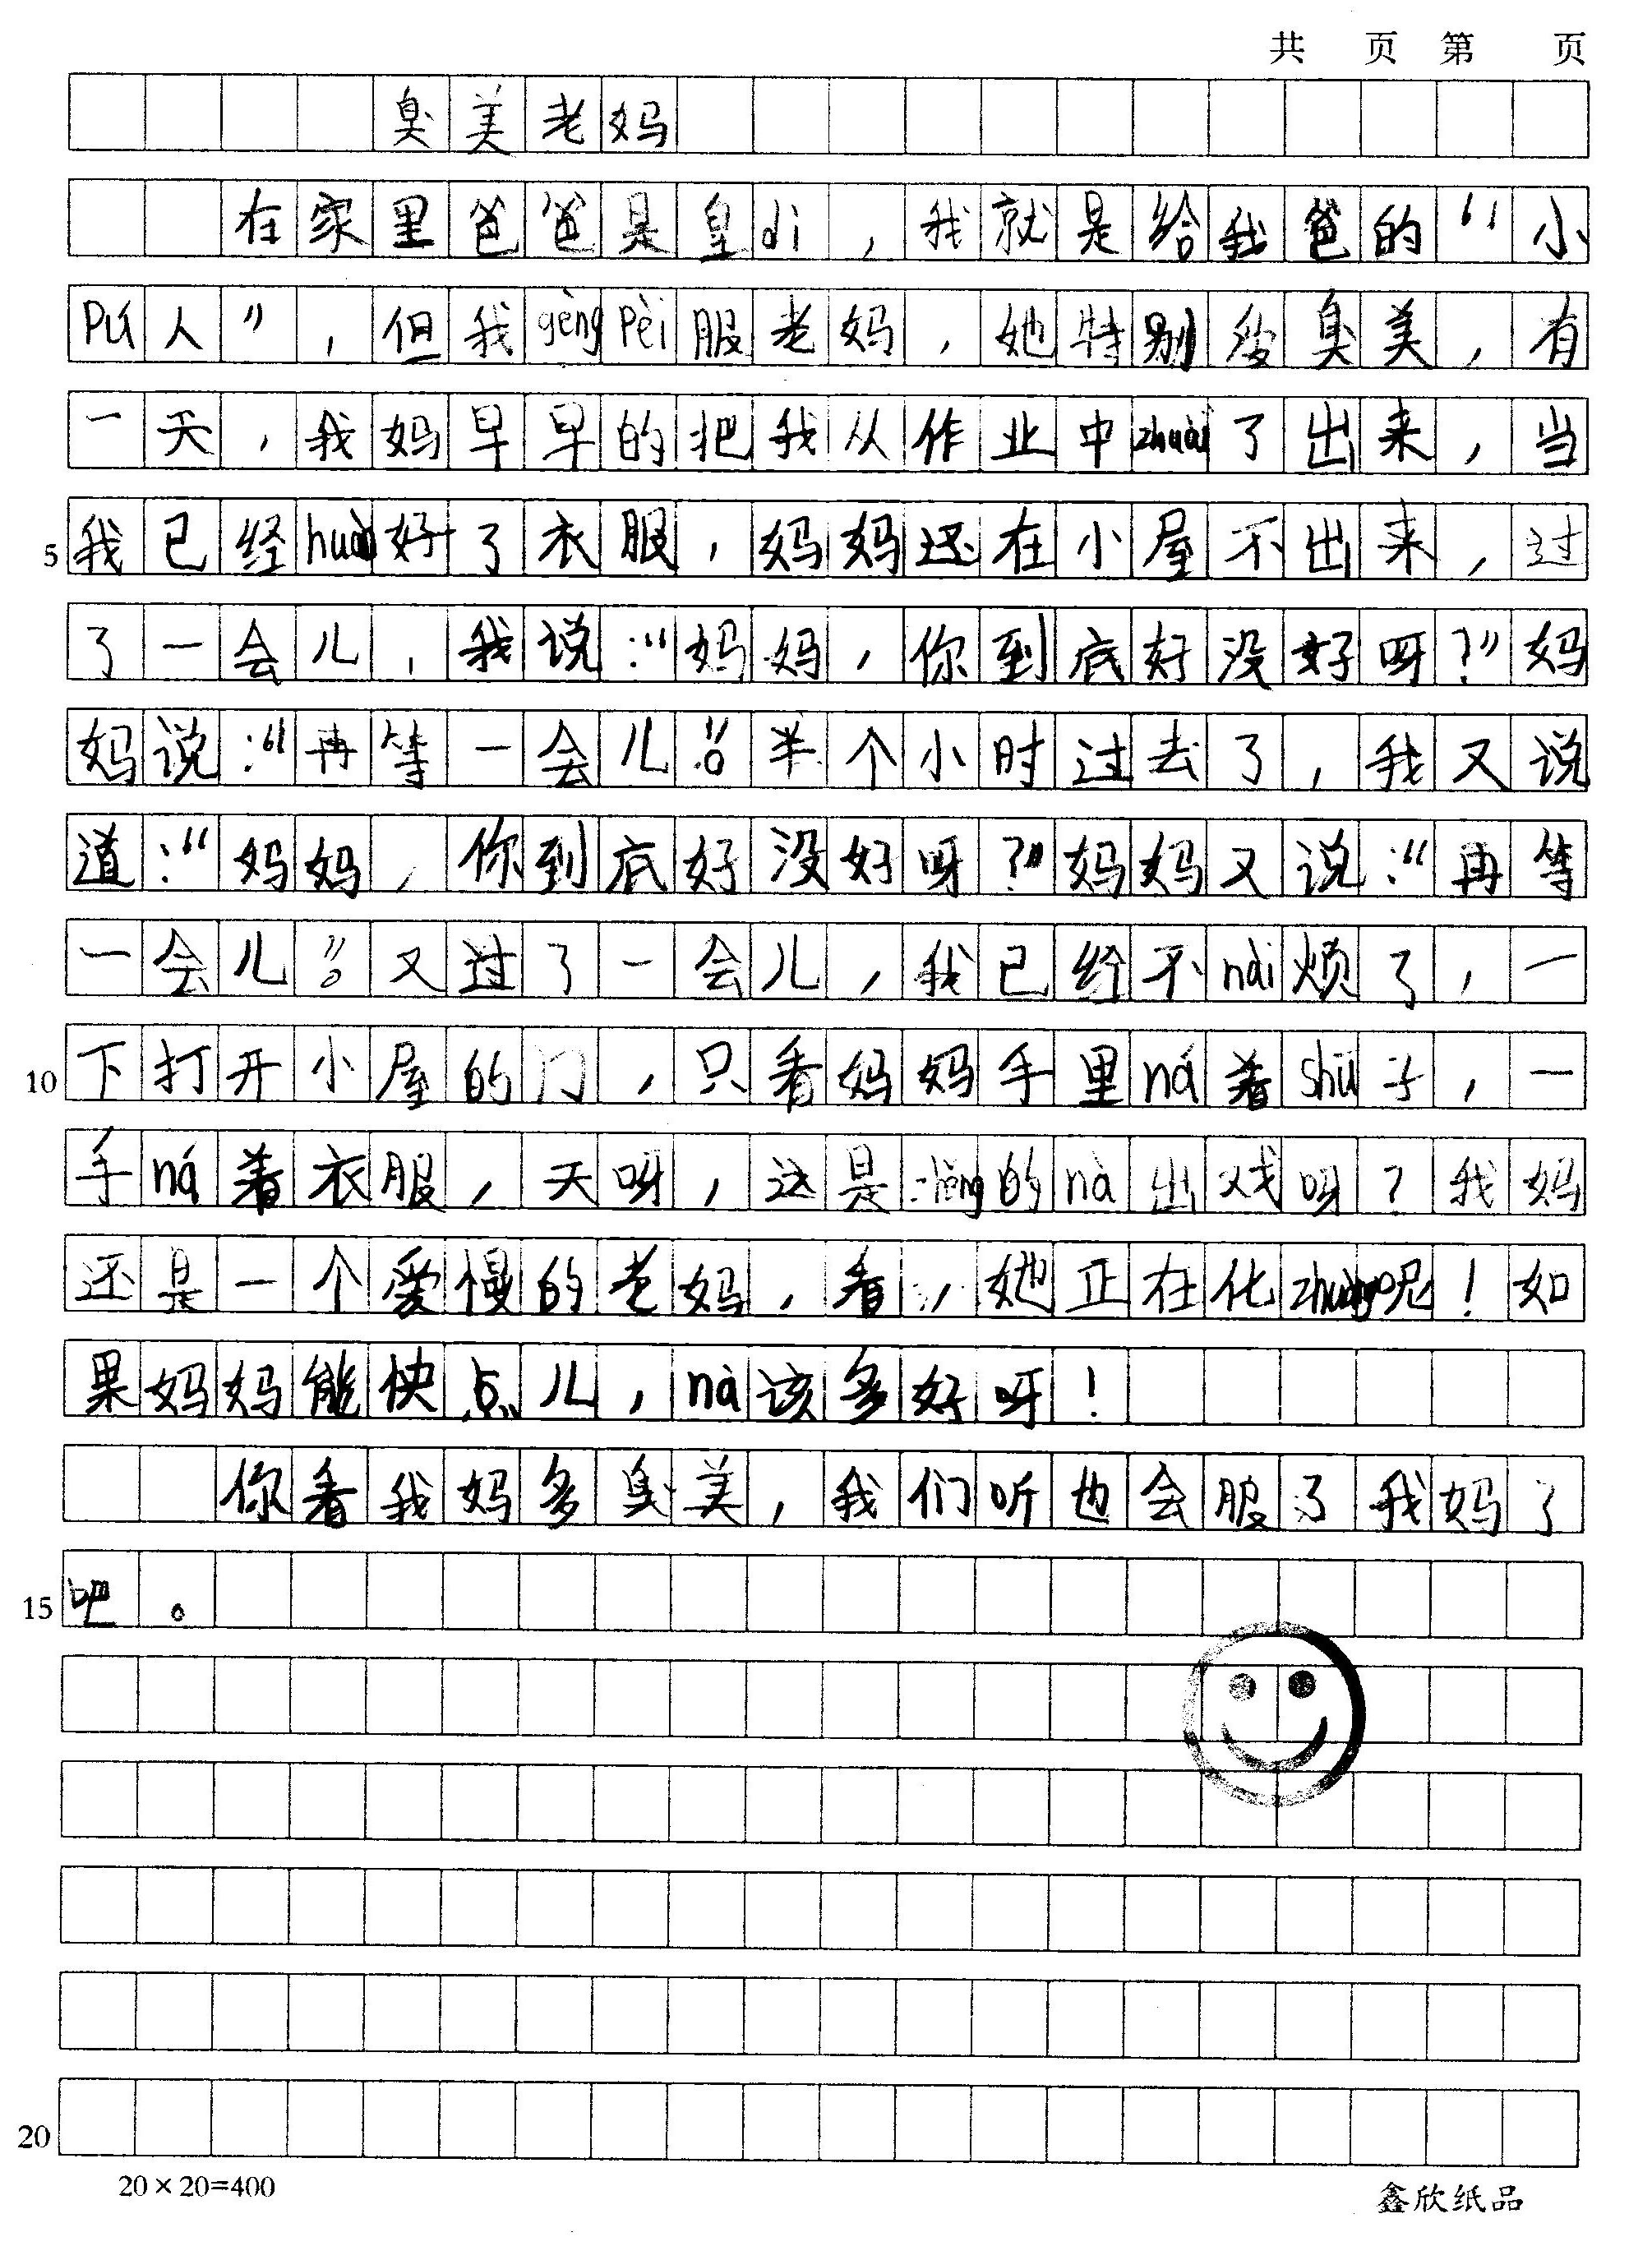 共 页 第 页
臭美老妈
在家里爸爸是皇di，我就是给我爸的“小
pú人”，但我gèng pèi服老妈，她特别爱臭美，有
一天，我妈早早的把我从作业中zhuài了出来，当
5 我已经huàn好了衣服，妈妈还在小屋不出来，过
了一会儿，我说：“妈妈，你到底好没好呀？”妈
妈说：“再等一会儿。”半个小时过去了，我又说
道：“妈妈，你到底好没好呀？”妈妈又说：“再等
一会儿。”又过了一会儿，我已经不nài烦了，一
10 下打开小屋的门，只看妈妈手里ná着shū子，一
手ná着衣服，天呀，这是的nà出戏呀？我妈
还是一个爱慢的老妈，看，她正在化zhuāng呢！如
果妈妈能快点儿，nà该多好呀！
你看我妈多臭美，我们听也会服了我妈了
15 吧。
20
20×20=400
鑫欣纸品